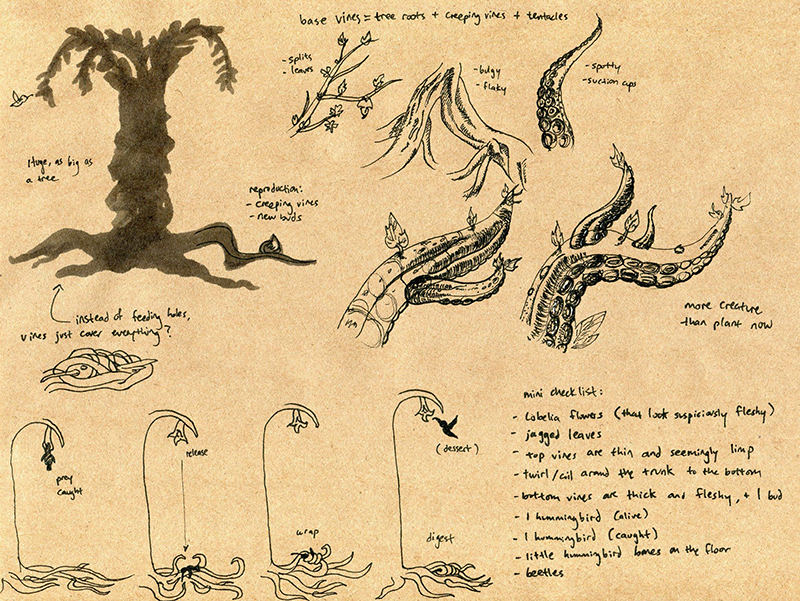 base vines = tree roots + creeping vines + tentacles
- splits
- leaves
- bulgy
- flaky
- spotty
- suction cups
Huge, as big as
a tree
reproduction:
- creeping vines
- new buds
instead of feeding holes,
vines just cover everything?
more creature
than plant now
prey
caught
release
wrap
(dessert)
digest
mini checklist:
- Lobelia flowers (that look suspiciously fleshy)
- jagged leaves
- top vines are thin and seemingly limp
- twirl/coil around the trunk to the bottom
- bottom vines are thick and fleshy, + 1 bud
- 1 hummingbird (alive)
- 1 hummingbird (caught)
- little hummingbird bones on the floor
- beetles